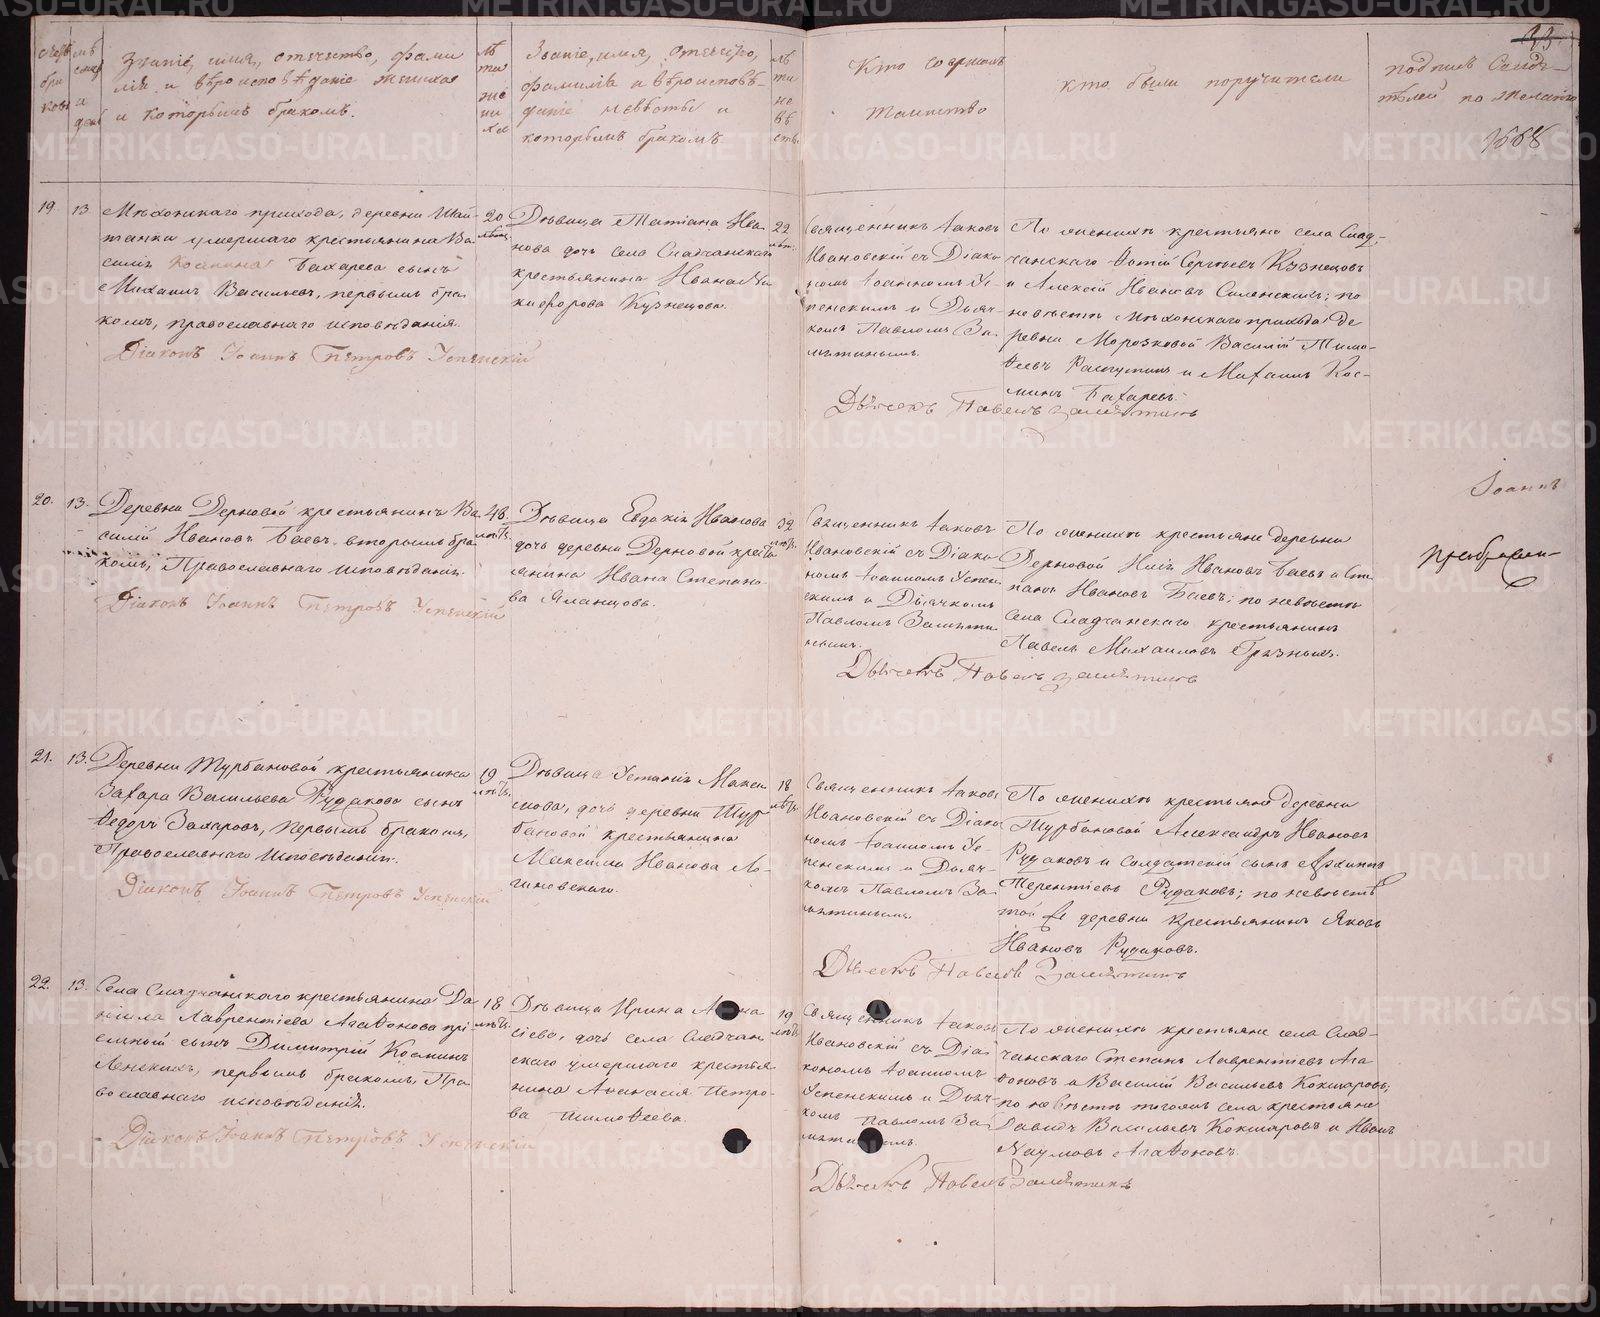 33.
1668
Званіе, имя, отчество, фами
лія и вѣроисповѣданіе жениха
и которымъ бракомъ.
лѣ
та
же
ни
ха
Званіе, имя, отчество,
фамилія и вѣроисповѣ-
даніе невѣсты и
которымъ бракомъ
лѣ
та
не
вѣ
сты
Кто совершалъ
таинство
кто были поручители
подпись свидѣ-
телей по желанію
19.
13
Мѣхонскаго прихода, деревни Шай-
танки умершаго крестьянина Ва
силія Космина Бахарева сынъ
Михаилъ Васильевъ, первымъ бра
комъ, православнаго исповѣданія.
Діаконъ Іоаннъ Петровъ Успенскій
20
Дѣвица Татіана Ива
нова дочь села Сладчанскаго
крестьянина Ивана Ни
кифорова Кузнецова.
22
лѣт.
Священникъ Іаковъ
Ивановскій съ Діако
номъ Іоанномъ Ус-
пенскимъ и Дьяч-
комъ Павломъ За-
мятинымъ.
По женихѣ крестьяне села Слад-
чанскаго Фотій Сергѣевъ Кузнецовъ
и Алексѣй Ивановъ Силенскихъ; по
невѣстѣ Мѣхонскаго прихода де
ревни Морозковой Василій Тимо-
ѳеевъ Распутинъ и Михаилъ Кос-
минъ Бахаревъ.
Дьячекъ Павелъ Замятинъ
20.
13.
Деревни Дерновой крестьянинъ Ва
силій Ивановъ Баевъ вторымъ бра
комъ, Православнаго исповѣданія.
Діаконъ Іоаннъ Петровъ Успенскій
48.
лѣтъ.
Дѣвица Евдокія Иванова
дочь деревни Дерновой кресть
янина Ивана Степано-
ва Яланцова.
32
лѣтъ.
Священникъ Іаковъ
Ивановскій съ Діако
номъ Іоанномъ Успен
скимъ и Дьячкомъ
Павломъ Замяти
нымъ.
По женихѣ крестьяне деревни
Дерновой Илія Ивановъ Баевъ и Сте
панъ Ивановъ Баевъ; по невѣстѣ
села Сладчанскаго крестьянинъ
Павелъ Михаиловъ Грязныхъ.
Дьячекъ Павелъ Замятинъ
Іоаннъ
Преображен-
21.
13.
Деревни Турбановой крестьянина
Захара Васильева Рудакова сынъ
Ѳедоръ Захаровъ, первымъ бракомъ,
Православнаго исповѣданія.
Діаконъ Іоаннъ Петровъ Успенскій
19
лѣтъ.
Дѣвица Устинія Макси
мова, дочь деревни Тур
бановой крестьянина
Максима Иванова Ло-
гиновскаго.
18
лѣтъ.
Священникъ Іаковъ
Ивановскій съ Діако
номъ Іоанномъ Ус-
пенскимъ и Дьяч-
комъ Павломъ За-
мятинымъ.
По женихѣ крестьяне деревни
Турбановой Александръ Ивановъ
Рудаковъ и солдатскій сынъ Архиппъ
Терентіевъ Рудаковъ; по невѣстѣ
той же деревни крестьянинъ Яковъ
Ивановъ Рудаковъ.
Дьячекъ Павелъ Замятинъ
22.
13.
Села Сладчанскаго крестьянина Да
ніила Лаврентіева Агаѳонова прі
емный сынъ Димитрій Косминъ
Ленскихъ, первымъ бракомъ, Пра
вославнаго исповѣданія.
Діаконъ Іоаннъ Петровъ Успенскій
18
лѣтъ.
Дѣвица Ирина Аѳана
сіева, дочь села Сладчан
скаго умершаго крестья
нина Аѳанасія Петро-
ва Тимоѳеева.
19
лѣтъ.
Священникъ Іаковъ
Ивановскій съ Діа
кономъ Іоанномъ
Успенскимъ и Дьяч-
комъ Павломъ За-
По женихѣ крестьяне села Слад-
чанскаго Степанъ Лаврентіевъ Ага
ѳоновъ и Василій Васильевъ Кокшаровъ;
по невѣстѣ тогожъ села крестьяне
Давидъ Васильевъ Кокшаровъ и Иванъ
Наумовъ Агаѳоновъ.
Дьячекъ Павелъ Замятинъ
METRIKI.GASO-URAL.RU